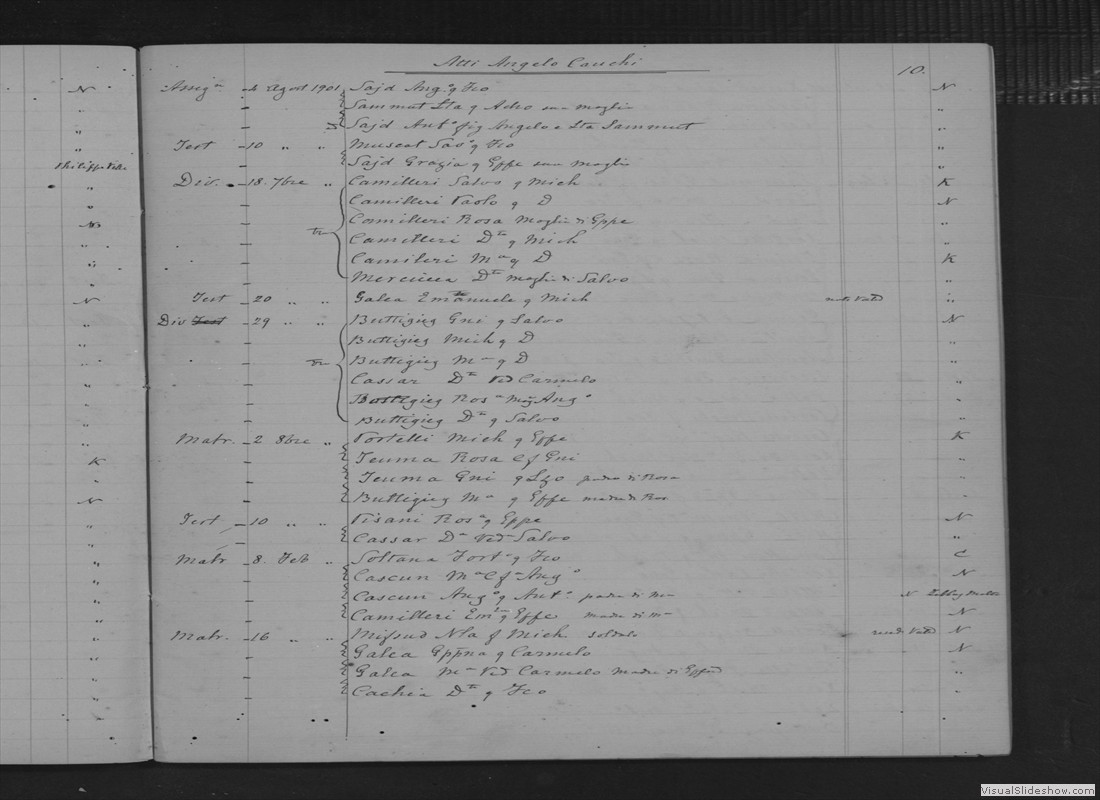 Philippe
N
N
N
K
N
Atti Angelo Cauchi
10.
4 Agost 1901 Sajd Ang.o q Fco N
Sammut Lta q Adeo sua moglie
Sajd Ant.o fig Angelo e Lta Sammut
Test 10 " " Muscat Sav.o q Fco
Sajd Grazia q Gppe sua moglie
Div. 18. 7bre " Camilleri Salvo q Mich K
Camilleri Paolo q D N
Camilleri Rosa moglie di Gppe
Camilleri D.ca q Mich
Camilleri M.a q D K
Mercieca D.ca moglie di Salvo
Test 20 " " Galea Emanuele q Mich
Div Test 29 " " Buttigieg Gni q Salvo N
Buttigieg Mich q D
Buttigieg M.a q D
Cassar D.ca Ved Carmelo
Buttigieg Ros.a mog Ang.o
Buttigieg D.ca q Salvo
Matr. 2 8bre " Portelli Mich q Gppe K
Teuma Rosa q f Gni
Teuma Gni q Lzo padre di Rosa
Buttigieg M.a q Gppe madre di Ros
Test 10 " " Pisani Ros.a q Gppe N
Cassar D.a Ved Salvo
Matr 8. Feb " Soltana Fort.o q Fco C
Cascun M.a f Ang.o N
Cascun Ang.o q Ant.o padre di M.a N
Camilleri q Gppe madre di M.a N
Matr. 16 " " Mifsud Nla f Mich soldato N
Galea Gppna q Carmelo N
Galea M.a Ved Carmelo madre di
Cachia D.ca q Fco
VisualSlideshow.com